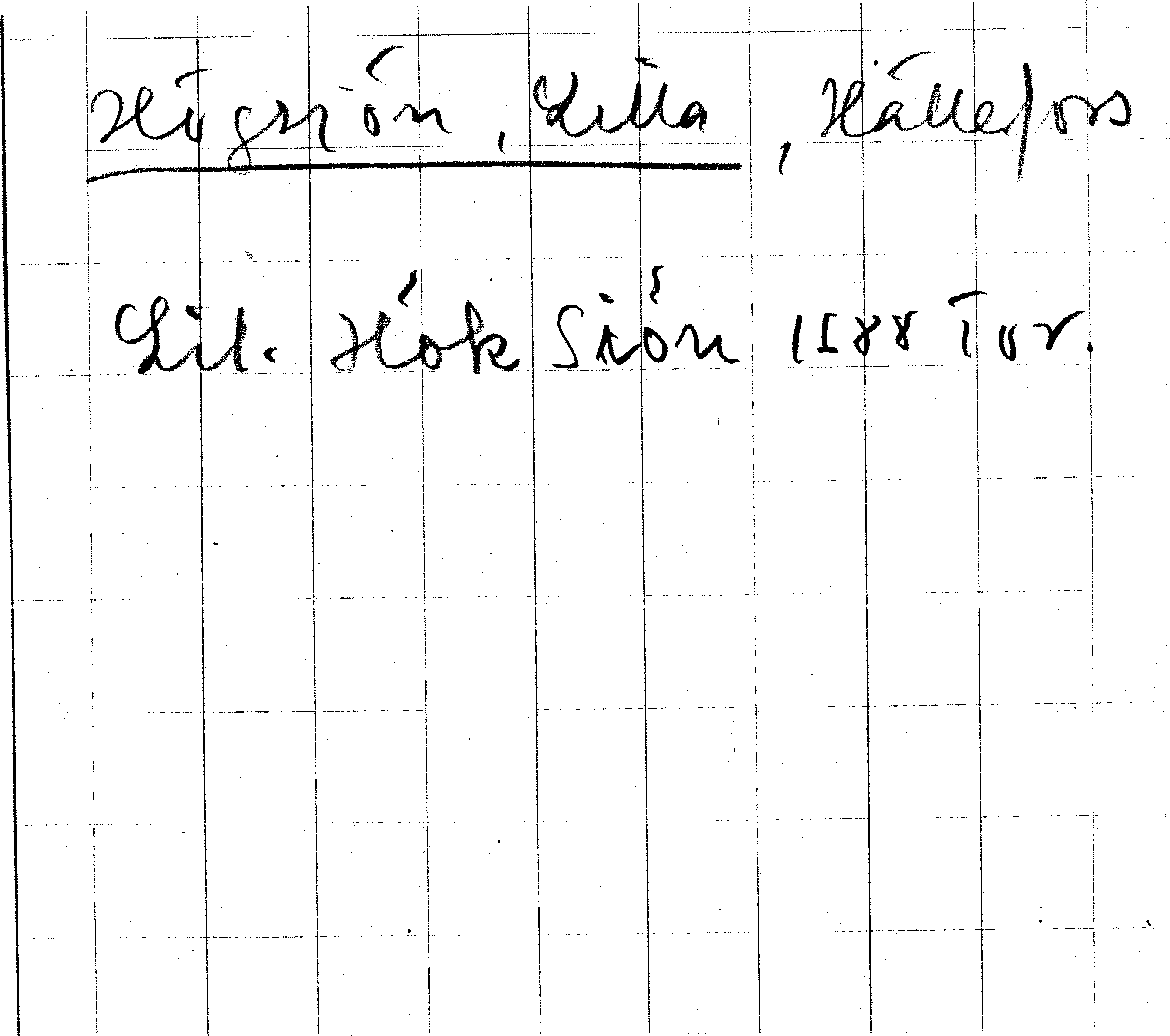 Högsjön, Lilla, Hällefors
Lil. Hök Siön 1588 Tvr.